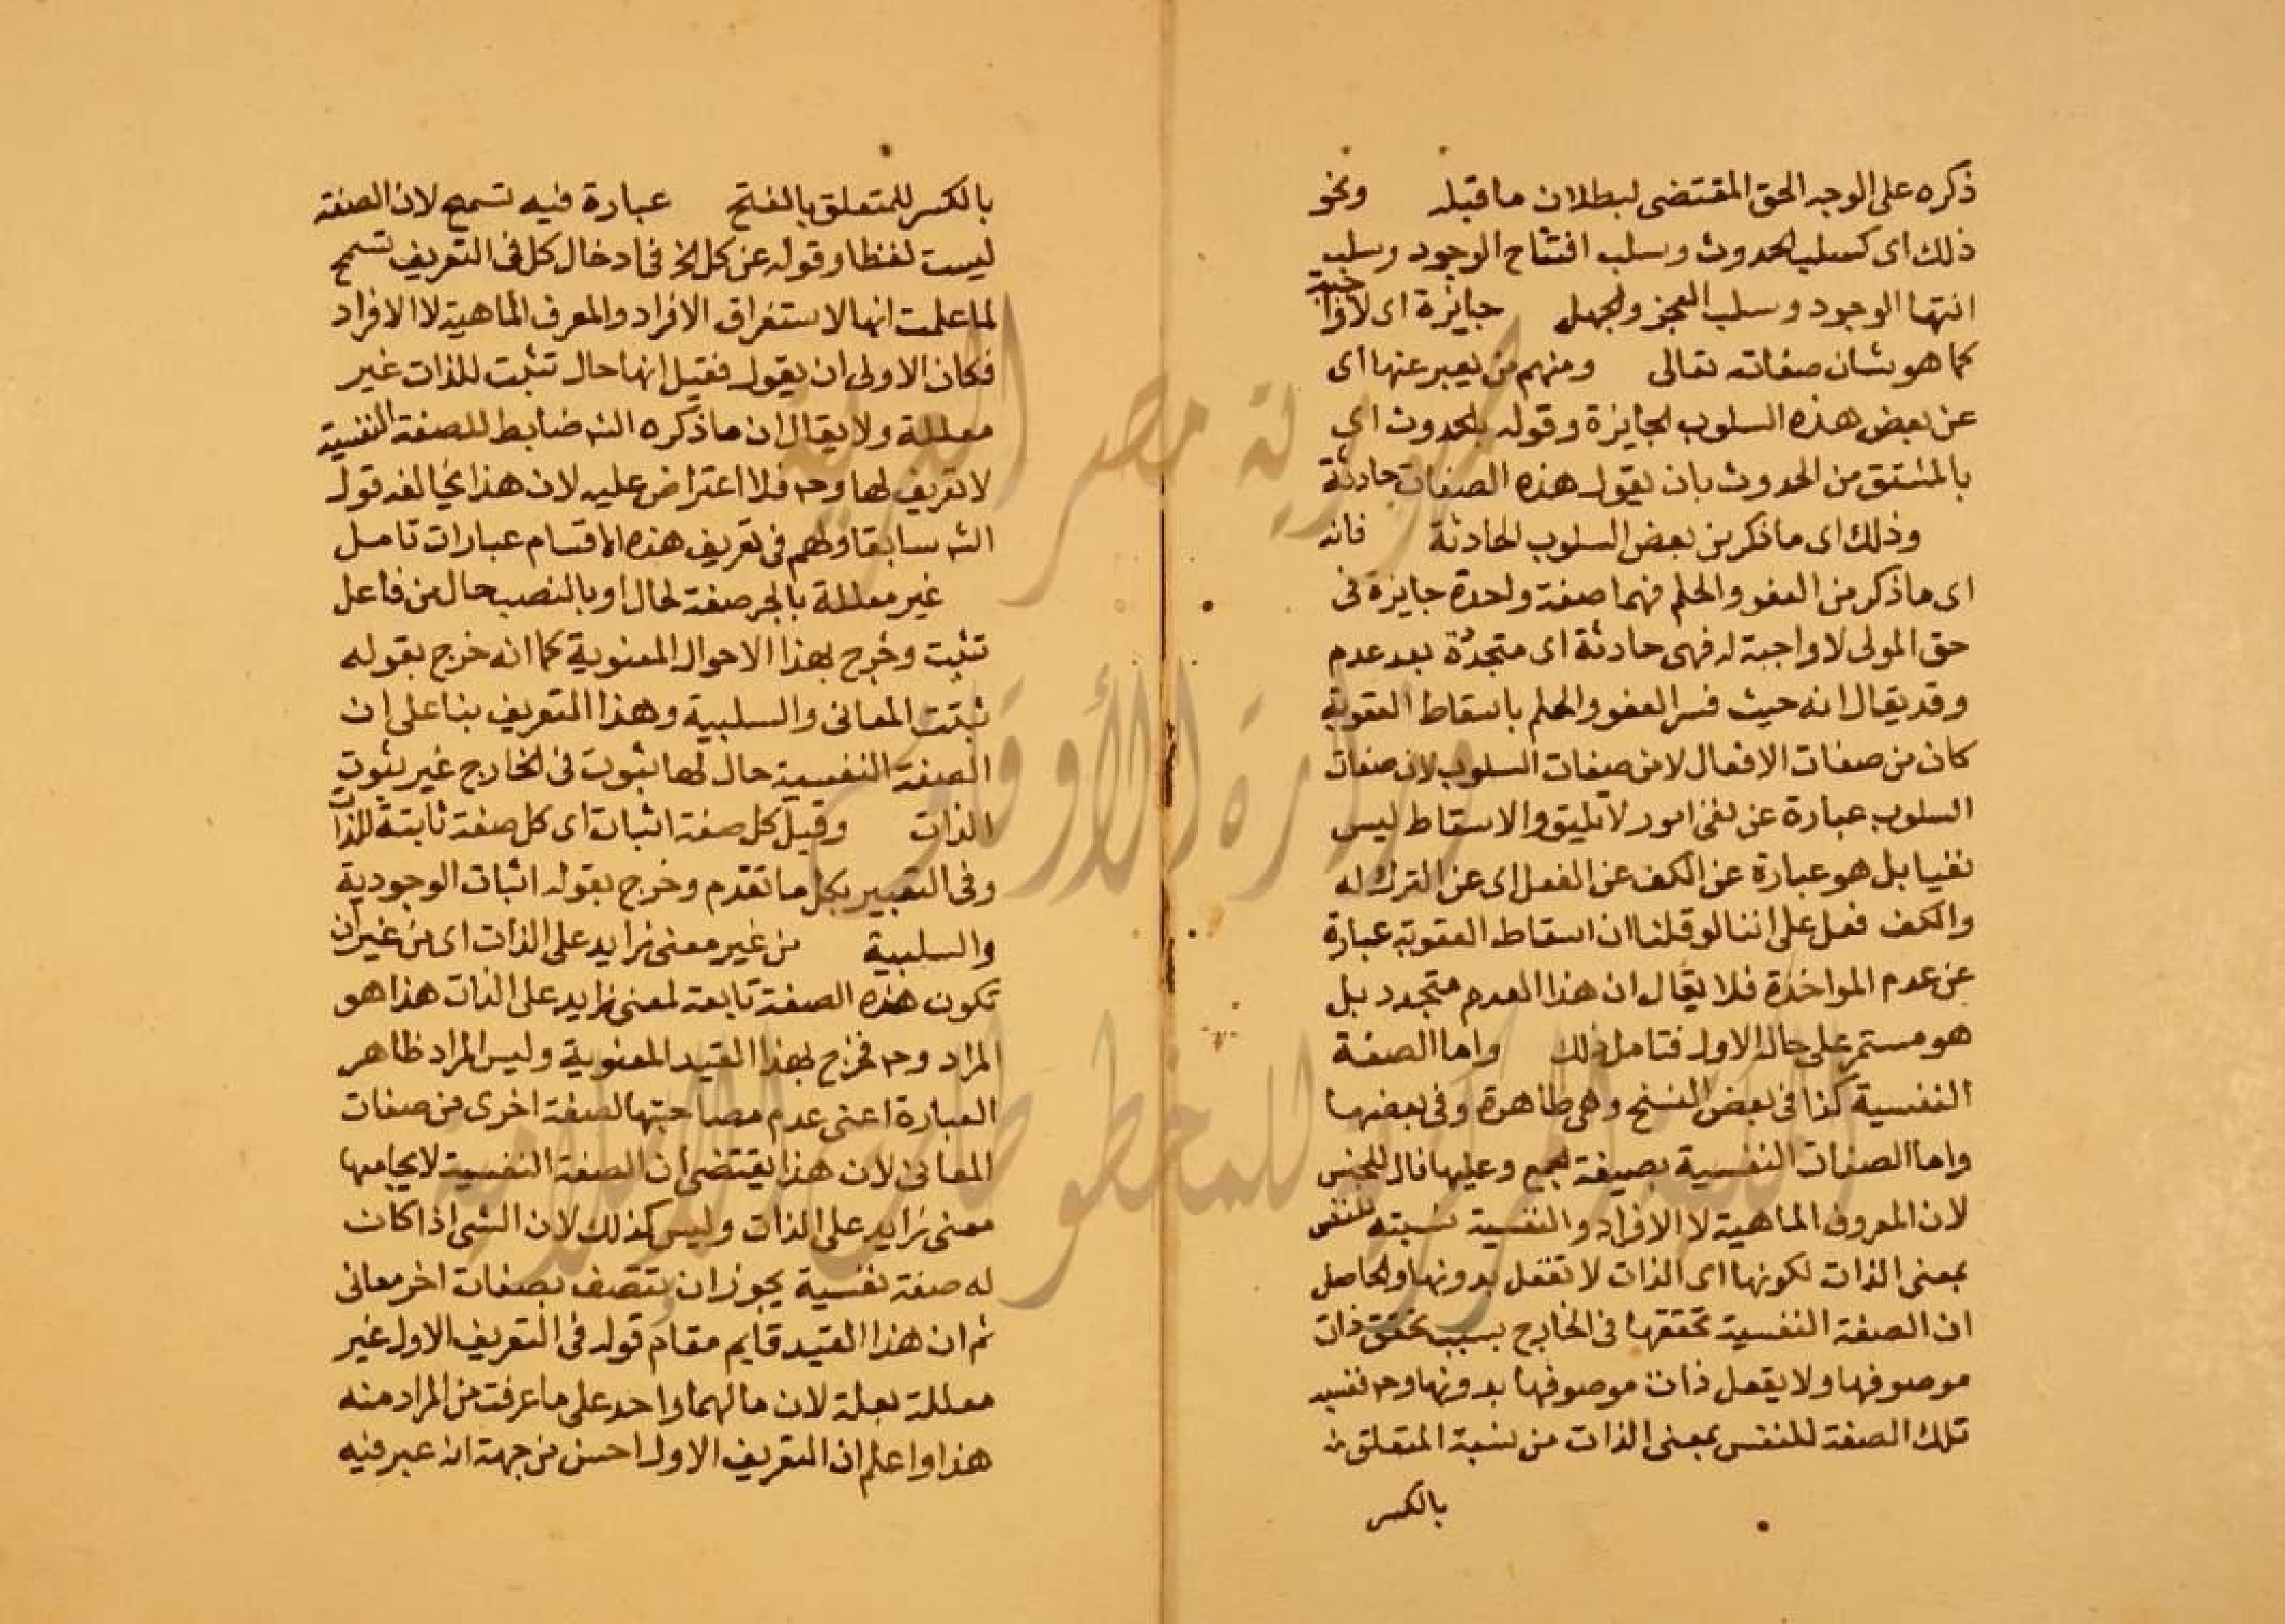 ذكره على الوجه الحق المقتضى لبطلان ما قبله ونحو
ذلك اى كسلب الحدوث وسلب افتتاح الوجود وسلب
انتها الوجود وسلب العجز والجهل جايزة اى لا واجبة
كما هو شان صفاته تعالى ومنهم من يعبر عنها اى
عن بعض هذه السلوب الجايزة وقوله بالحدوث اى
بالمشتق من الحدوث بان يقول هذه الصفات حادثة
وذلك اى ما ذكر من بعض السلوب الحادثة فانه
اى ما ذكر من العفو والحلم فهما صفة واحدة جايزة فى
حق المولى لا واجبة له فهى حادثة اى متجددة بعد عدم
وقد يقال انه حيث فسر العفو والحلم باسقاط العقوبة
كان من صفات الافعال لا من صفات السلوب لان صفات
السلوب عبارة عن نفى امور لا تليق والاسقاط ليس
نفيا بل هو عبارة عن الكف عن الفعل اى عن الترك له
والكف فعل على اننا لو قلنا ان اسقاط العقوبة عبارة
عن عدم المواخذة فلا يقال ان هذا العدم متجدد بل
هو مستمر على حاله الاول فتامل ذلك واما الصفة
النفسية كذا فى بعض النسخ وهى ظاهرة وفى بعضها
واما الصفات النفسية بصيغة الجمع وعليها فال للجنس
لان المعروف الماهية لا الافراد والنفسية نسبته للنفس
بمعنى الذات لكونها اى الذات لا تعقل بدونها والحاصل
ان الصفة النفسية تحققها فى الخارج بسبب تحقق ذات
موصوفها ولا يعقل ذات موصوفها بدونها وح فنسبه
تلك الصفة للنفس بمعنى الذات من نسبة المتعلق
بالكسر
بالكسر للمتعلق بالفتح عبارة فيه تسمح لان الصفة
ليست لفظا وقوله عن كل الخ فى ادخال كل فى التعريف تسمح
لما علمت انها لاستغراق الافراد والمعرف الماهية لا الافراد
فكان الاولى ان يقول فقيل انها حال تثبت للذات غير
معللة ولا يقال ان ما ذكره الش ضابط للصفة النفسية
لا تعريف لها وح فلا اعتراض عليه لان هذا يخالفه قول
الش سابقا ولهم فى تعريف هذه الاقسام عبارات تامل
غير معللة بالجر صفة لحال او بالنصب حال من فاعل
تثبت وخرج بهذا الاحوال المعنوية كما انه خرج بقوله
تثبت المعانى والسلبية وهذا التعريف بنا على ان
الصفة النفسية حال لها ثبوت فى الخارج غير ثبوت
الذات وقيل كل صفة اثبات اى كل صفة ثابتة للذات
وفى التعبير بكل ما تقدم وخرج بقوله اثبات الوجودية
والسلبية من غير معنى زايد على الذات اى من غير ان
تكون هذه الصفة تابعة لمعنى زايد على الذات هذا هو
المراد وح فخرج بهذا القيد المعنوية وليس المراد ظاهر
العبارة اعنى عدم مصاحبتها لصفة اخرى من صفات
المعانى لان هذا يقتضى ان الصفة النفسية لا يجامعها
معنى زايد على الذات وليس كذلك لان الشى اذا كانت
له صفة نفسية يجوز ان يتصف بصفات اخر معانى
ثم ان هذا القيد قايم مقام قوله فى التعريف الاول غير
معللة بعلة لان مالهما واحد على ما عرفت من المراد منه
هذا واعلم ان التعريف الاول احسن من جهة انه عبر فيه